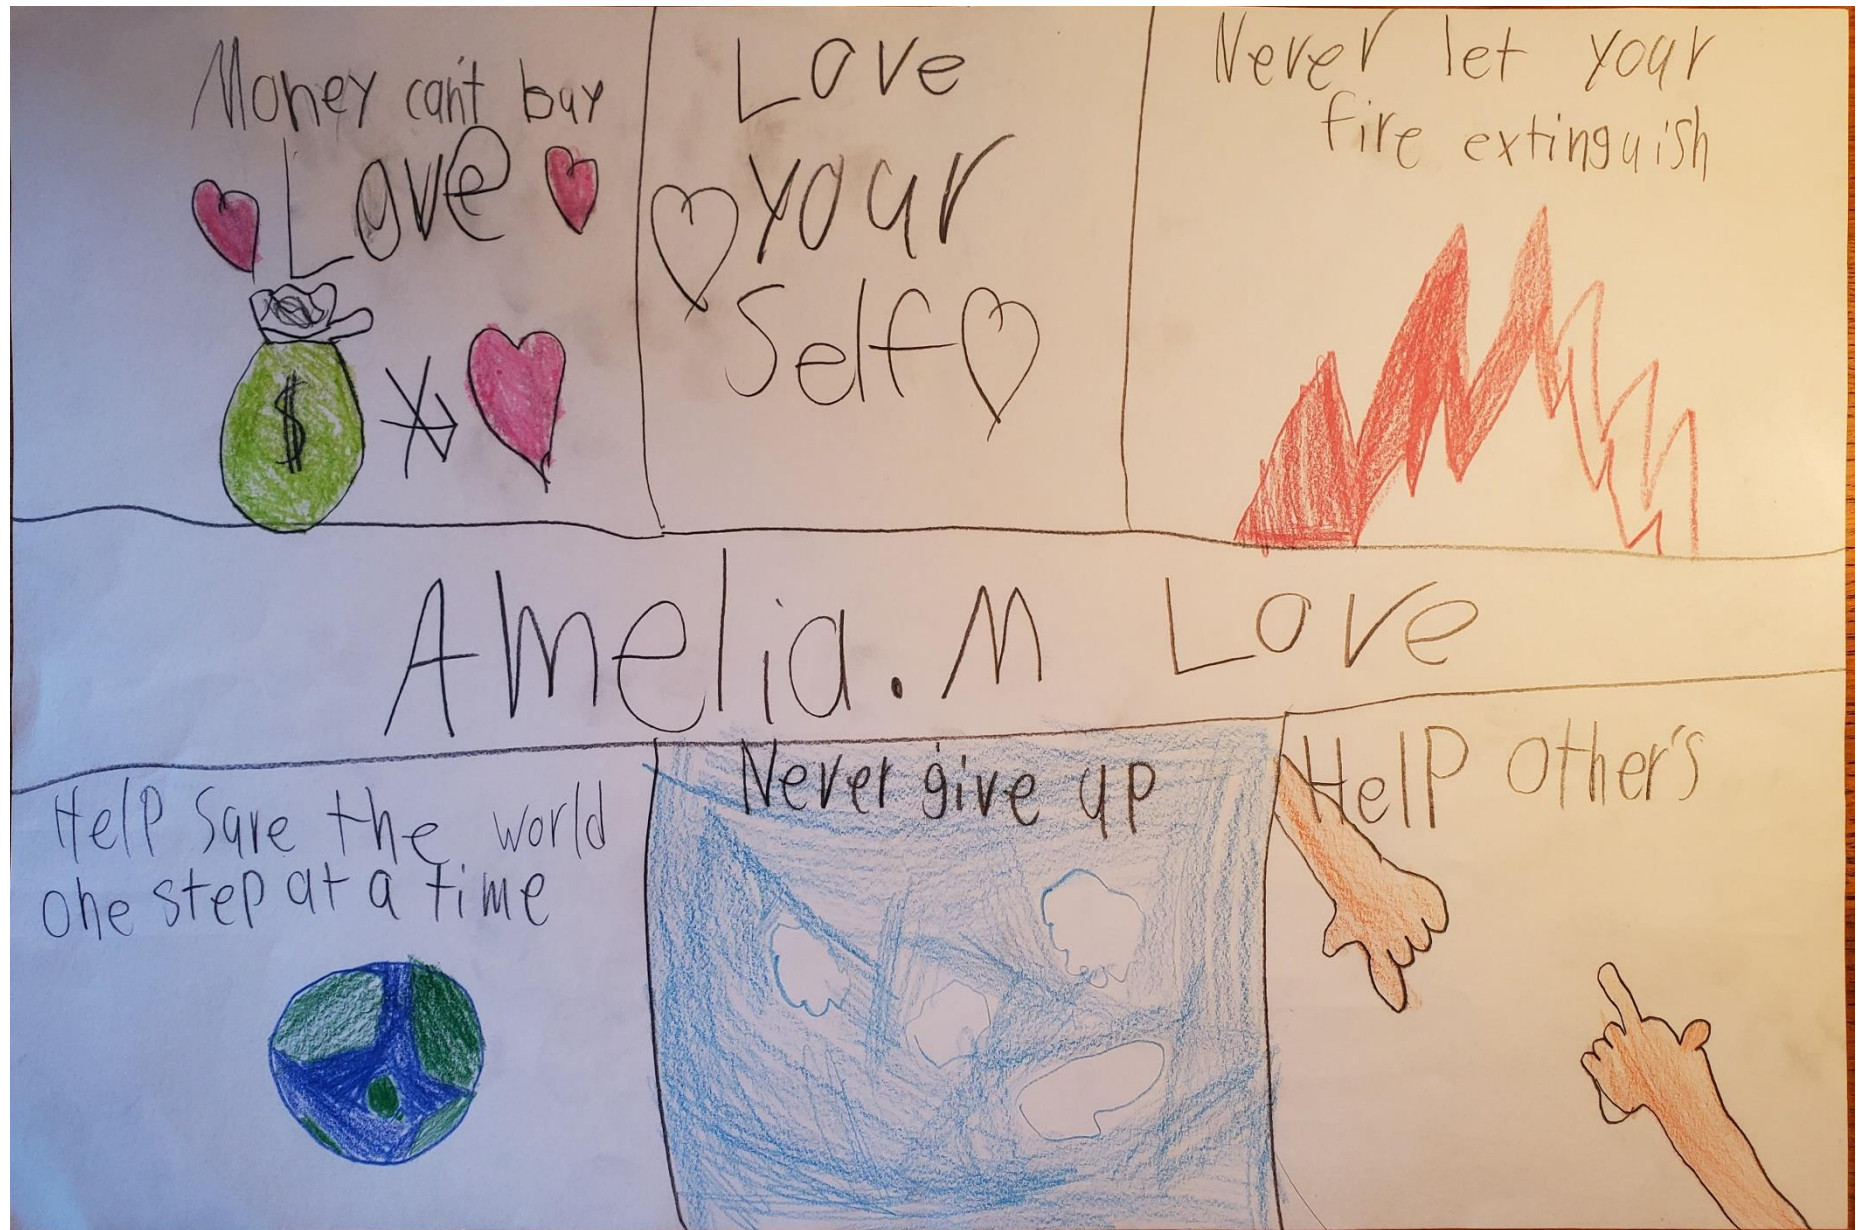 Money can't buy
Love
$
Love
your
Self
Never let your
fire extinguish
Amelia.M Love
Help Save the world
one step at a time
Never give up
Help other's